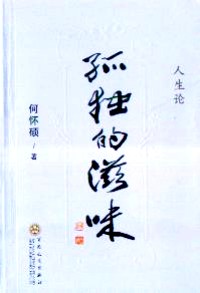 人生论
孤独的滋味
何怀硕/著